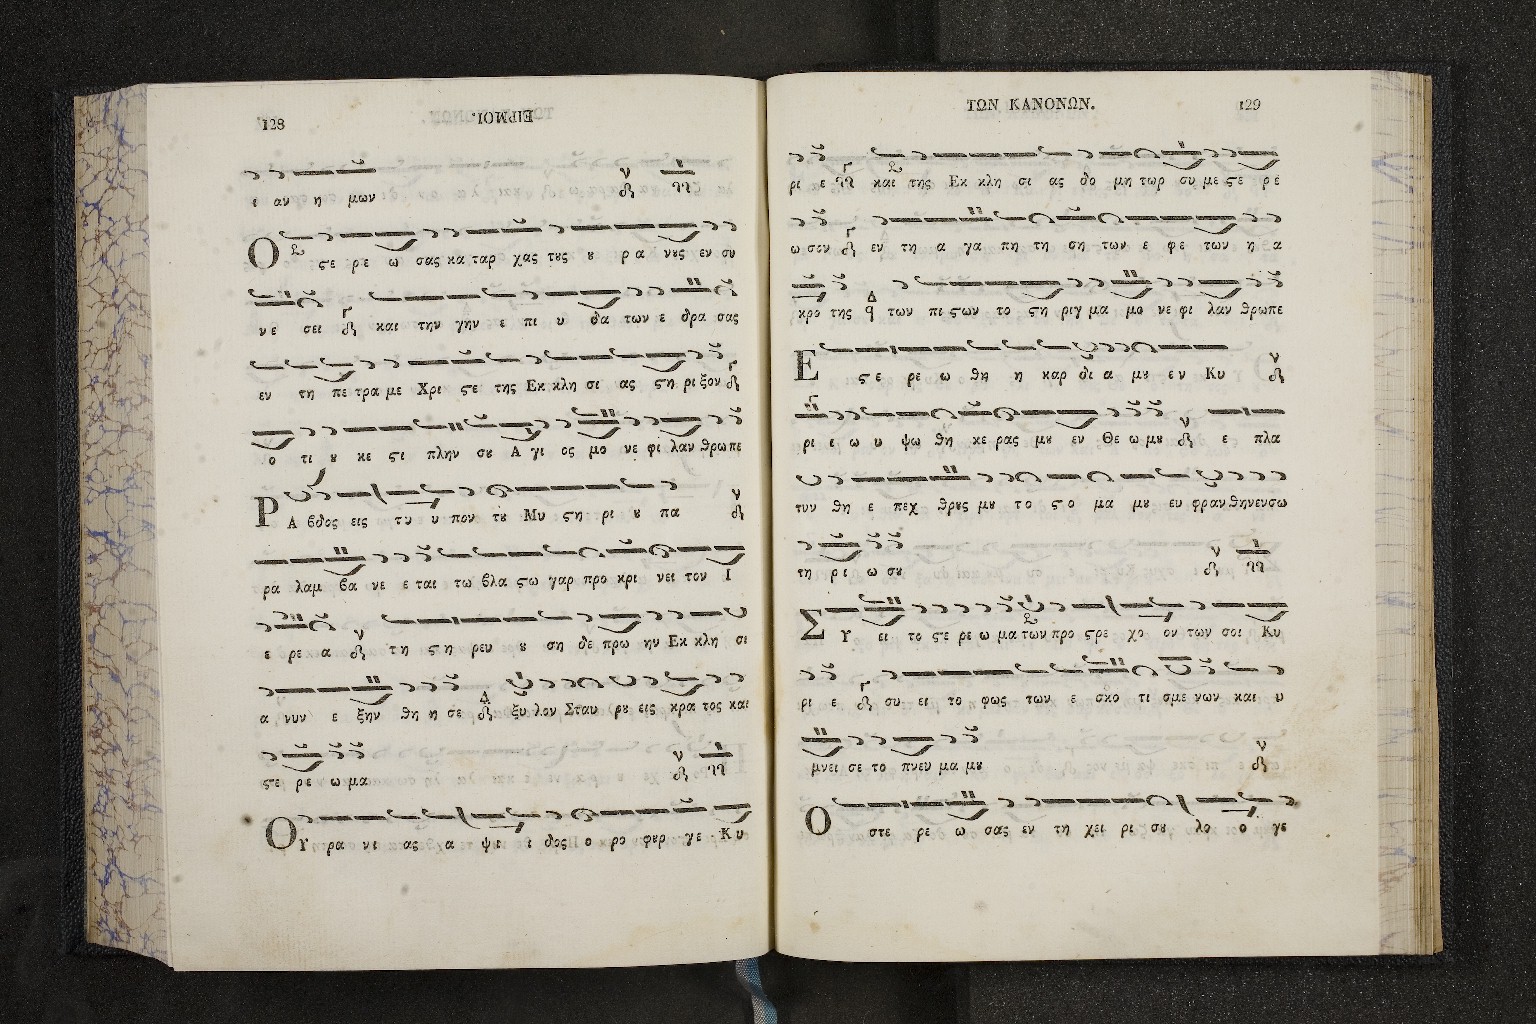 128
ΕΙΡΜΟΙ.
ι αν η μων
Ο ϛε ρε ω σας κα ταρ χας τȣς ȣ ρα νȣς εν συ
νε σει και την γην ε πι υ δα των ε δρα σας
εν τη πε τρα με Χρι ϛε της Εκ κλη σι ας ϛη ρι ξον
ο τι ȣ κε ϛι πλην σȣ Α γι ος μο νε φι λαν θρωπε
Ρ Α βδος εις τυ υ πον τȣ Μυ ϛη ρι ȣ πα
ρα λαμ βα νε ε ται τω βλα ϛω γαρ προ κρι νει τον Ι
ε ρε α τη ϛη ρευ ȣ ση δε πρω ην Εκ κλη σι
α νυν ε ξην θη η σε ξυ λον Σταυ ρȣ εις κρα τος και
ϛε ρε ω μα
Ο Υ ρα νι ας α ψι ι δος ο ρο φȣρ γε Κυ
ΤΩΝ ΚΑΝΟΝΩΝ.
129
ρι ε και της Εκ κλη σι ας δο μη τωρ συ με ϛε ρε
ω σον εν τη α γα πη τη ση των ε φε των η α
κρο της των πι ϛων το ϛη ριγ μα μο νε φι λαν θρωπε
Ε ϛε ρε ω θη η καρ δι α μȣ εν Κυ
ρι ε ω υ ψω θη κε ρας μȣ εν Θε ω μȣ ε πλα
τυν θη ε πεχ θρȣς μȣ το ϛο μα μȣ ευ φραν θηνενσω
τη ρι ω σȣ
Σ Υ ει το ϛε ρε ω μα των προ ϛρε χο ον των σοι Κυ
ρι ε συ ει το φως των ε σκο τι σμε νων και υ
μνει σε το πνευ μα μȣ
Ο στε ρε ω σας εν τη χει ρι σȣ λο ο γε